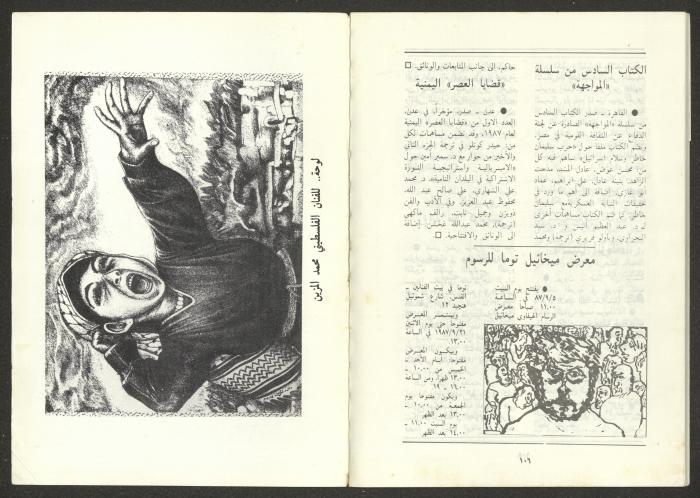 الكتاب السادس من سلسلة
«المواجهة»
● القاهرة ـ صدر الكتاب السادس
من سلسلة «المواجهة» الصادرة عن لجنة
الدفاع عن الثقافة القومية في مصر.
ويضم الكتاب ملفا حول «حرب سليمان
خاطر وسلام اسرائيل» ساهم فيه: كل
من: محسن عوض، عادل المشد، مدحت
الزاهد، بثينة
تحقيقات النيابة العسكرية مع سليمان
خاطر. كما ضم الكتاب مساهمات أخرى
لـ د. عبد العظيم أنيس و د. سيد
البحراوي، وباولو فريري (ترجمة) ومحمد
حاكم، الى جانب المتابعات والوثائق. □
«قضايا العصر» اليمنية
● عدن ـ صدر، مؤخراً، في عدن،
العدد الاول من «قضايا العصر» اليمنية
لعام ١٩٨٧، وقد تضمن مساهمات لكل
من: حيدر كوتلو في ترجمة الجزء الثاني
والأخير من حوار مع د. سمير أمين حول
«الامبريالية واستراتيجية الثورة
الاشتراكية في البلدان النامية»، د. محمد
علي الشهاري، علي صالح عبد الله،
محفوظ عبد العزيز، وفي الأدب والفن
وجميل ثابت، رالف ماكهي
(ترجمة)، محمد عبدالله إضافة
الى الوثائق والافتتاحية. □
معرض ميخائيل توما للرسوم
● يفتتح يوم السبت
٨٧/٩/٥ في الساعة
١١.٠٠ صباحا معرض
الرسام الحيفاوي ميخائيل
توما في بيت الفنانين ـ
القدس، شارع شموئيل
هنجيد ١٢
ويستمر العرض
مفتوحا حتى يوم الاثنين
١٩٨٧/٩/٢١ الساعة
١٣.٠٠
ويكون المعرض
مفتوحا: أيام الأحد ـ
الخميس من ١٠.٠٠ ـ
١٣.٠٠ ظهرا، ومن الساعة
١٦.٠٠ ـ ١٩
ويكون مفتوحا يوم
الجمعة من ١٠.٠٠ ـ
١٣.٠٠ بعد الظهر
يوم السبت ١١.٠٠ ـ
١٤.٠٠ بعد الظهر
١٠٦
لوحة.. للفنان الفلسطيني محمد المزين